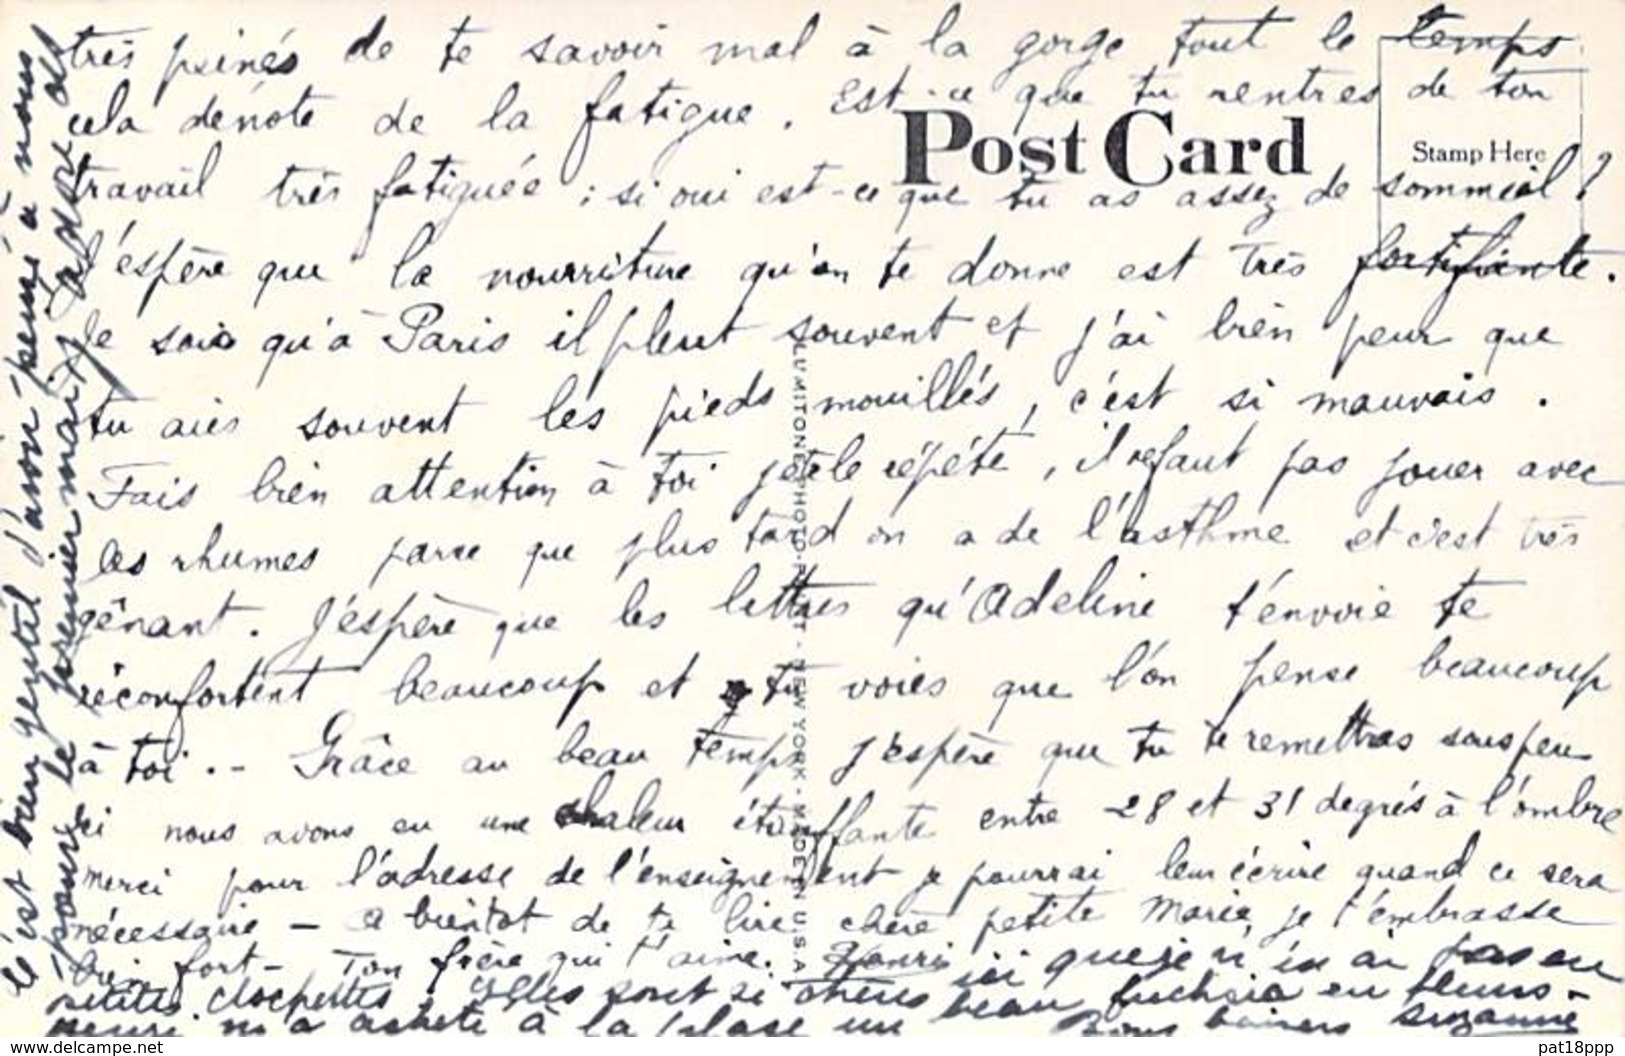 très peinés de te savoir mal à la gorge tout le temps
cela dénote de la fatigue. Est-ce que tu rentres de ton
Post Card
Stamp Here
travail très fatiguée ; si oui est-ce que tu as assez de sommeil ?
J'espère que la nourriture qu'on te donne est très fortifiante.
Je sais qu'à Paris il pleut souvent et j'ai bien peur que
tu aies souvent les pieds mouillés, c'est si mauvais.
Fais bien attention à toi je te le répète, il ne faut pas jouer avec
les rhumes parce que plus tard on a de l'asthme et c'est très
gênant. J'espère que les lettres qu'Adeline t'envoie te
réconfortent beaucoup et tu voies que l'on pense beaucoup
à toi. - Grâce au beau temps j'espère que tu te remettras sous peu
ici nous avons eu une chaleur étouffante entre 28 et 31 degrés à l'ombre
merci pour l'adresse de l'enseignement je pourrai leur écrire quand ce sera
nécessaire - A bientôt de te lire chère petite Marie, je t'embrasse
bien fort - Ton frère qui t'aime. Henri
LUMITONE PHOTOPRINT - NEW YORK - MADE IN U.S.A
C'est bien gentil d'avoir pensé à nous
pour le premier mai
petites clochettes, elles sont si chères ici que je n'en ai pas eu
Henri m'a acheté à la place un beau fuchsia en fleurs -
Bons baisers Suzanne
www.delcampe.net
pat18ppp